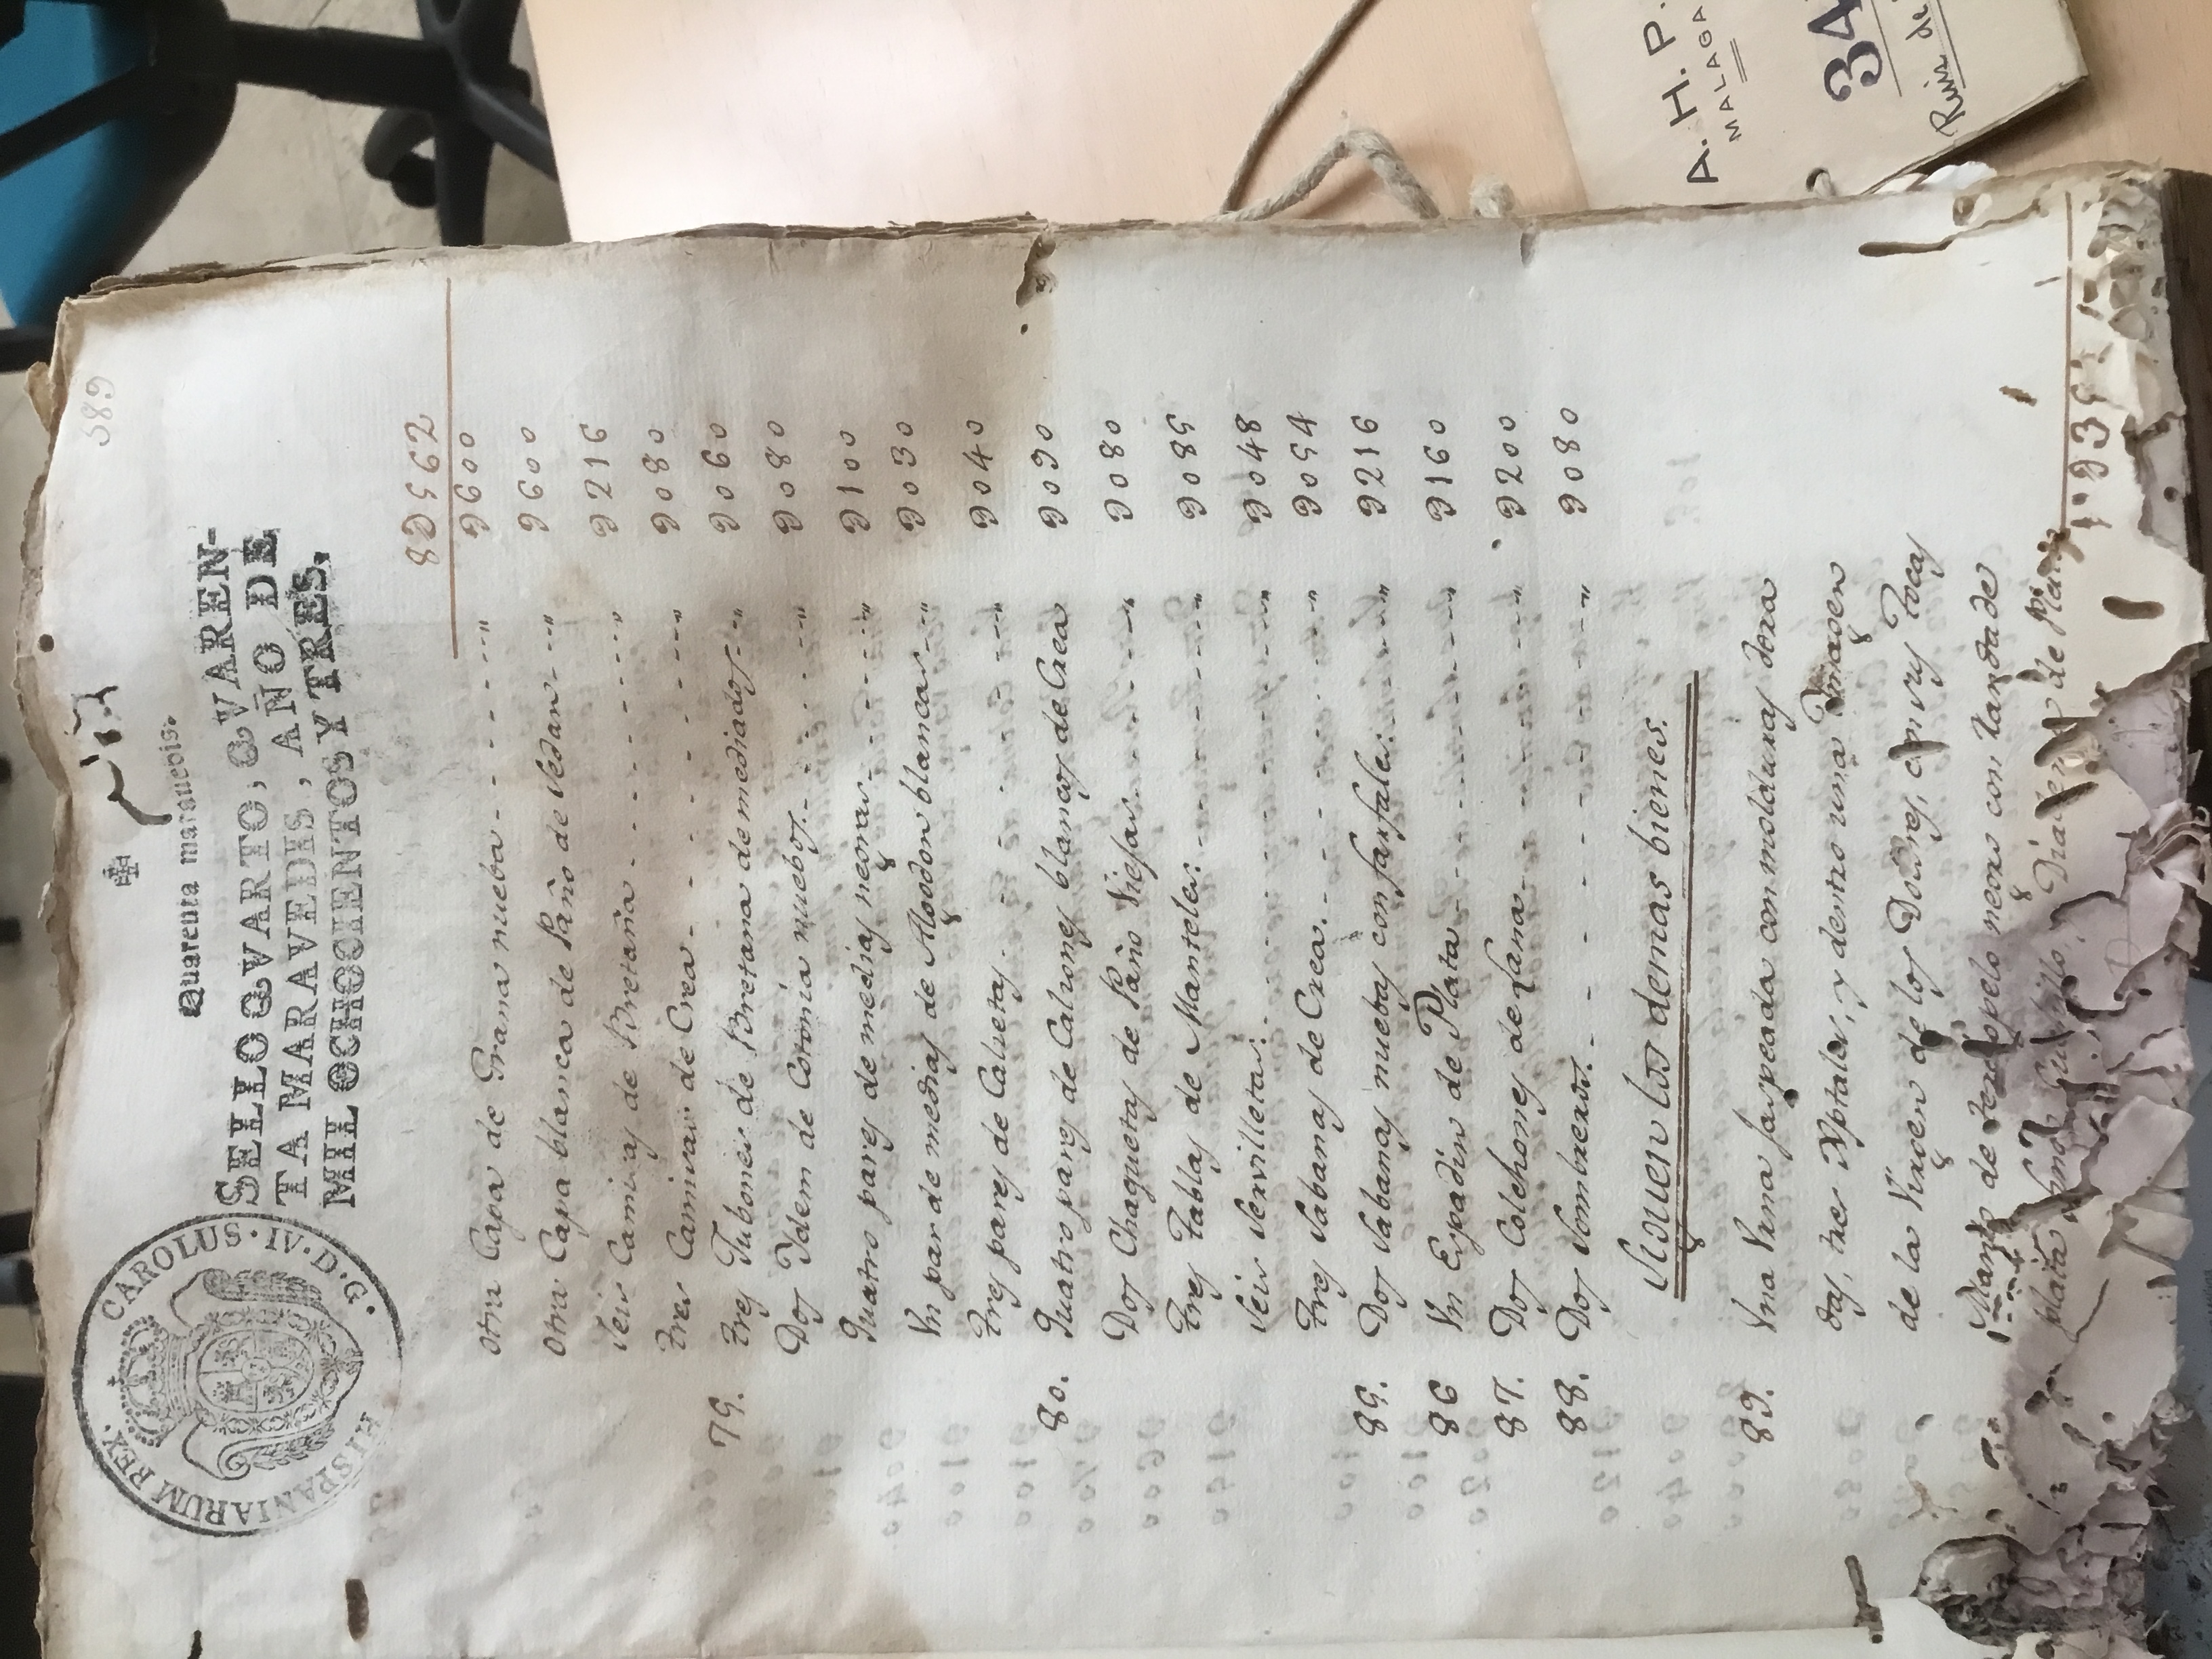 589
Quarenta marauedis.
SELLO QVARTO, QVAREN-
TA MARAVEDIS, AÑO DE
MIL OCHOCIENTOS Y TRES.
CAROLUS·IV·D·G·
HISPANIARUM REX.
8Ɔ562
otra Capa de Grana nueba Ɔ600
otra Capa blanca de Paño de Sedan Ɔ600
Seis Camisas de Bretaña Ɔ216
tres Camisas de Crea Ɔ080
79. tres Jubones de Bretana de mediados Ɔ060
Dos Ydem de Cotonia nuebos Ɔ080
Quatro pares de medias negras Ɔ100
Vn par de medias de Algodon blancas Ɔ030
tres pares de Calsetas Ɔ040
80. Quatro pares de Calsones blancos de Crea Ɔ090
Dos Chaquetas de Paño viejas Ɔ080
tres tablas de Manteles Ɔ085
Seis Servilletas Ɔ048
tres Sabanas de Crea Ɔ054
85. Dos Sabanas nuebas con farfales Ɔ216
86 Vn Espadin de Plata Ɔ160
87. Dos Colchones de Lana Ɔ200
88. Dos Sombreros Ɔ080
Siguen los demas bienes.
89. Vna Vrna Jaspeada con molduras dora
das, tres Xptales, y dentro una Ymagen
de la Virgen de los Dolores, con su toca
Manto de terciopelo negro con vanda de
plata Diadema de Plata
A. H. P.
MALAGA
34
Ruiz de